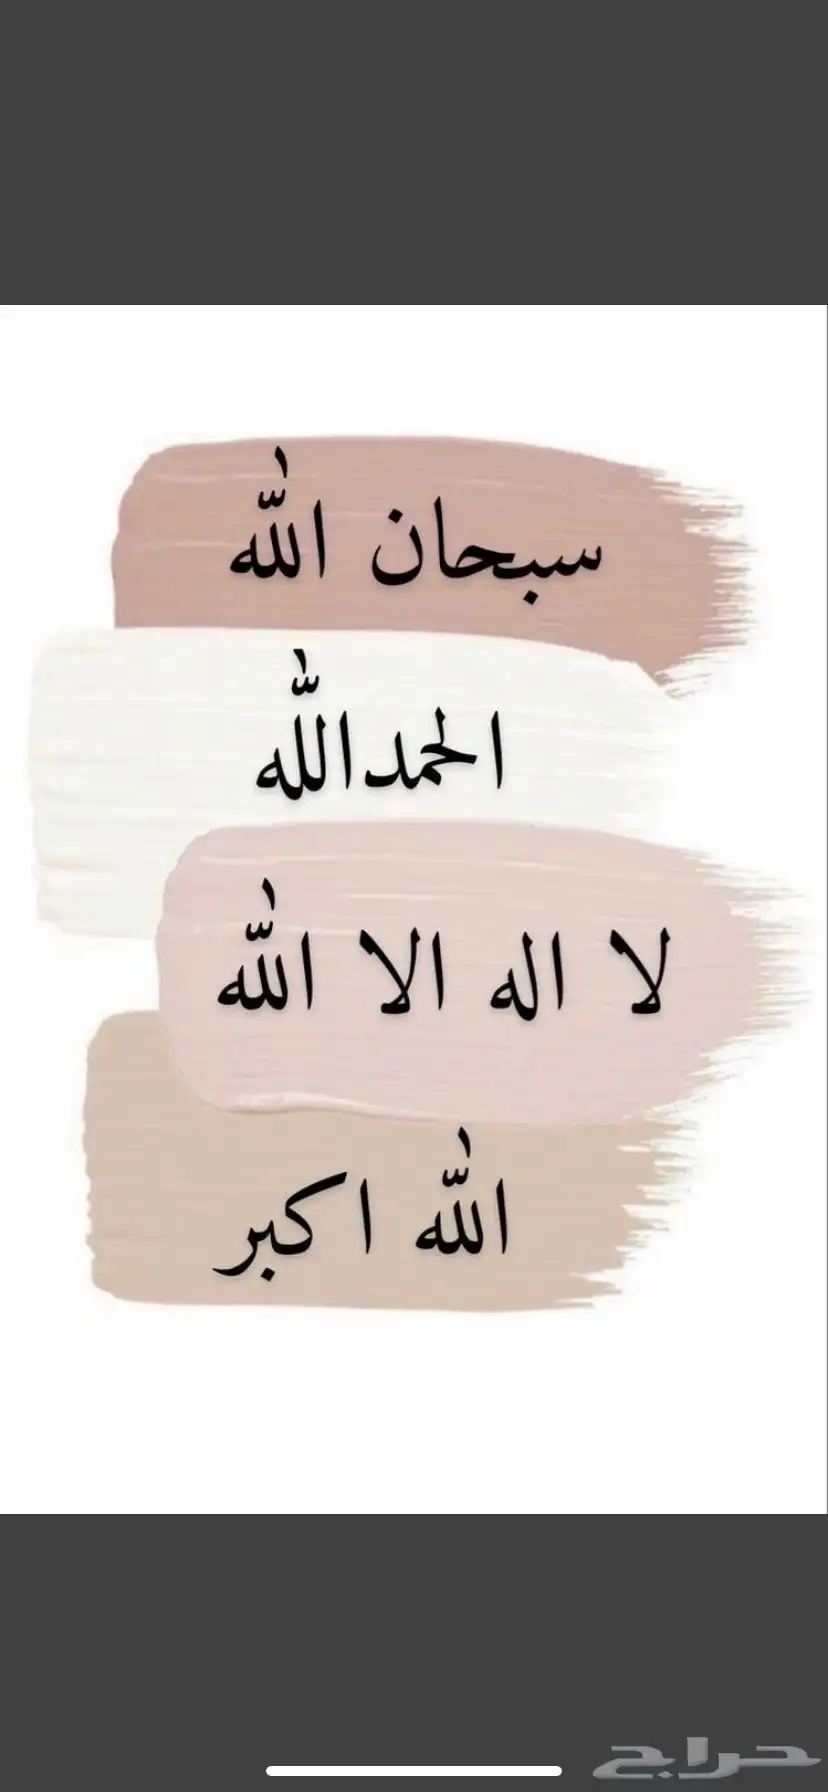 سبحان الله
الحمدالله
لا اله الا الله
الله اكبر
حراج